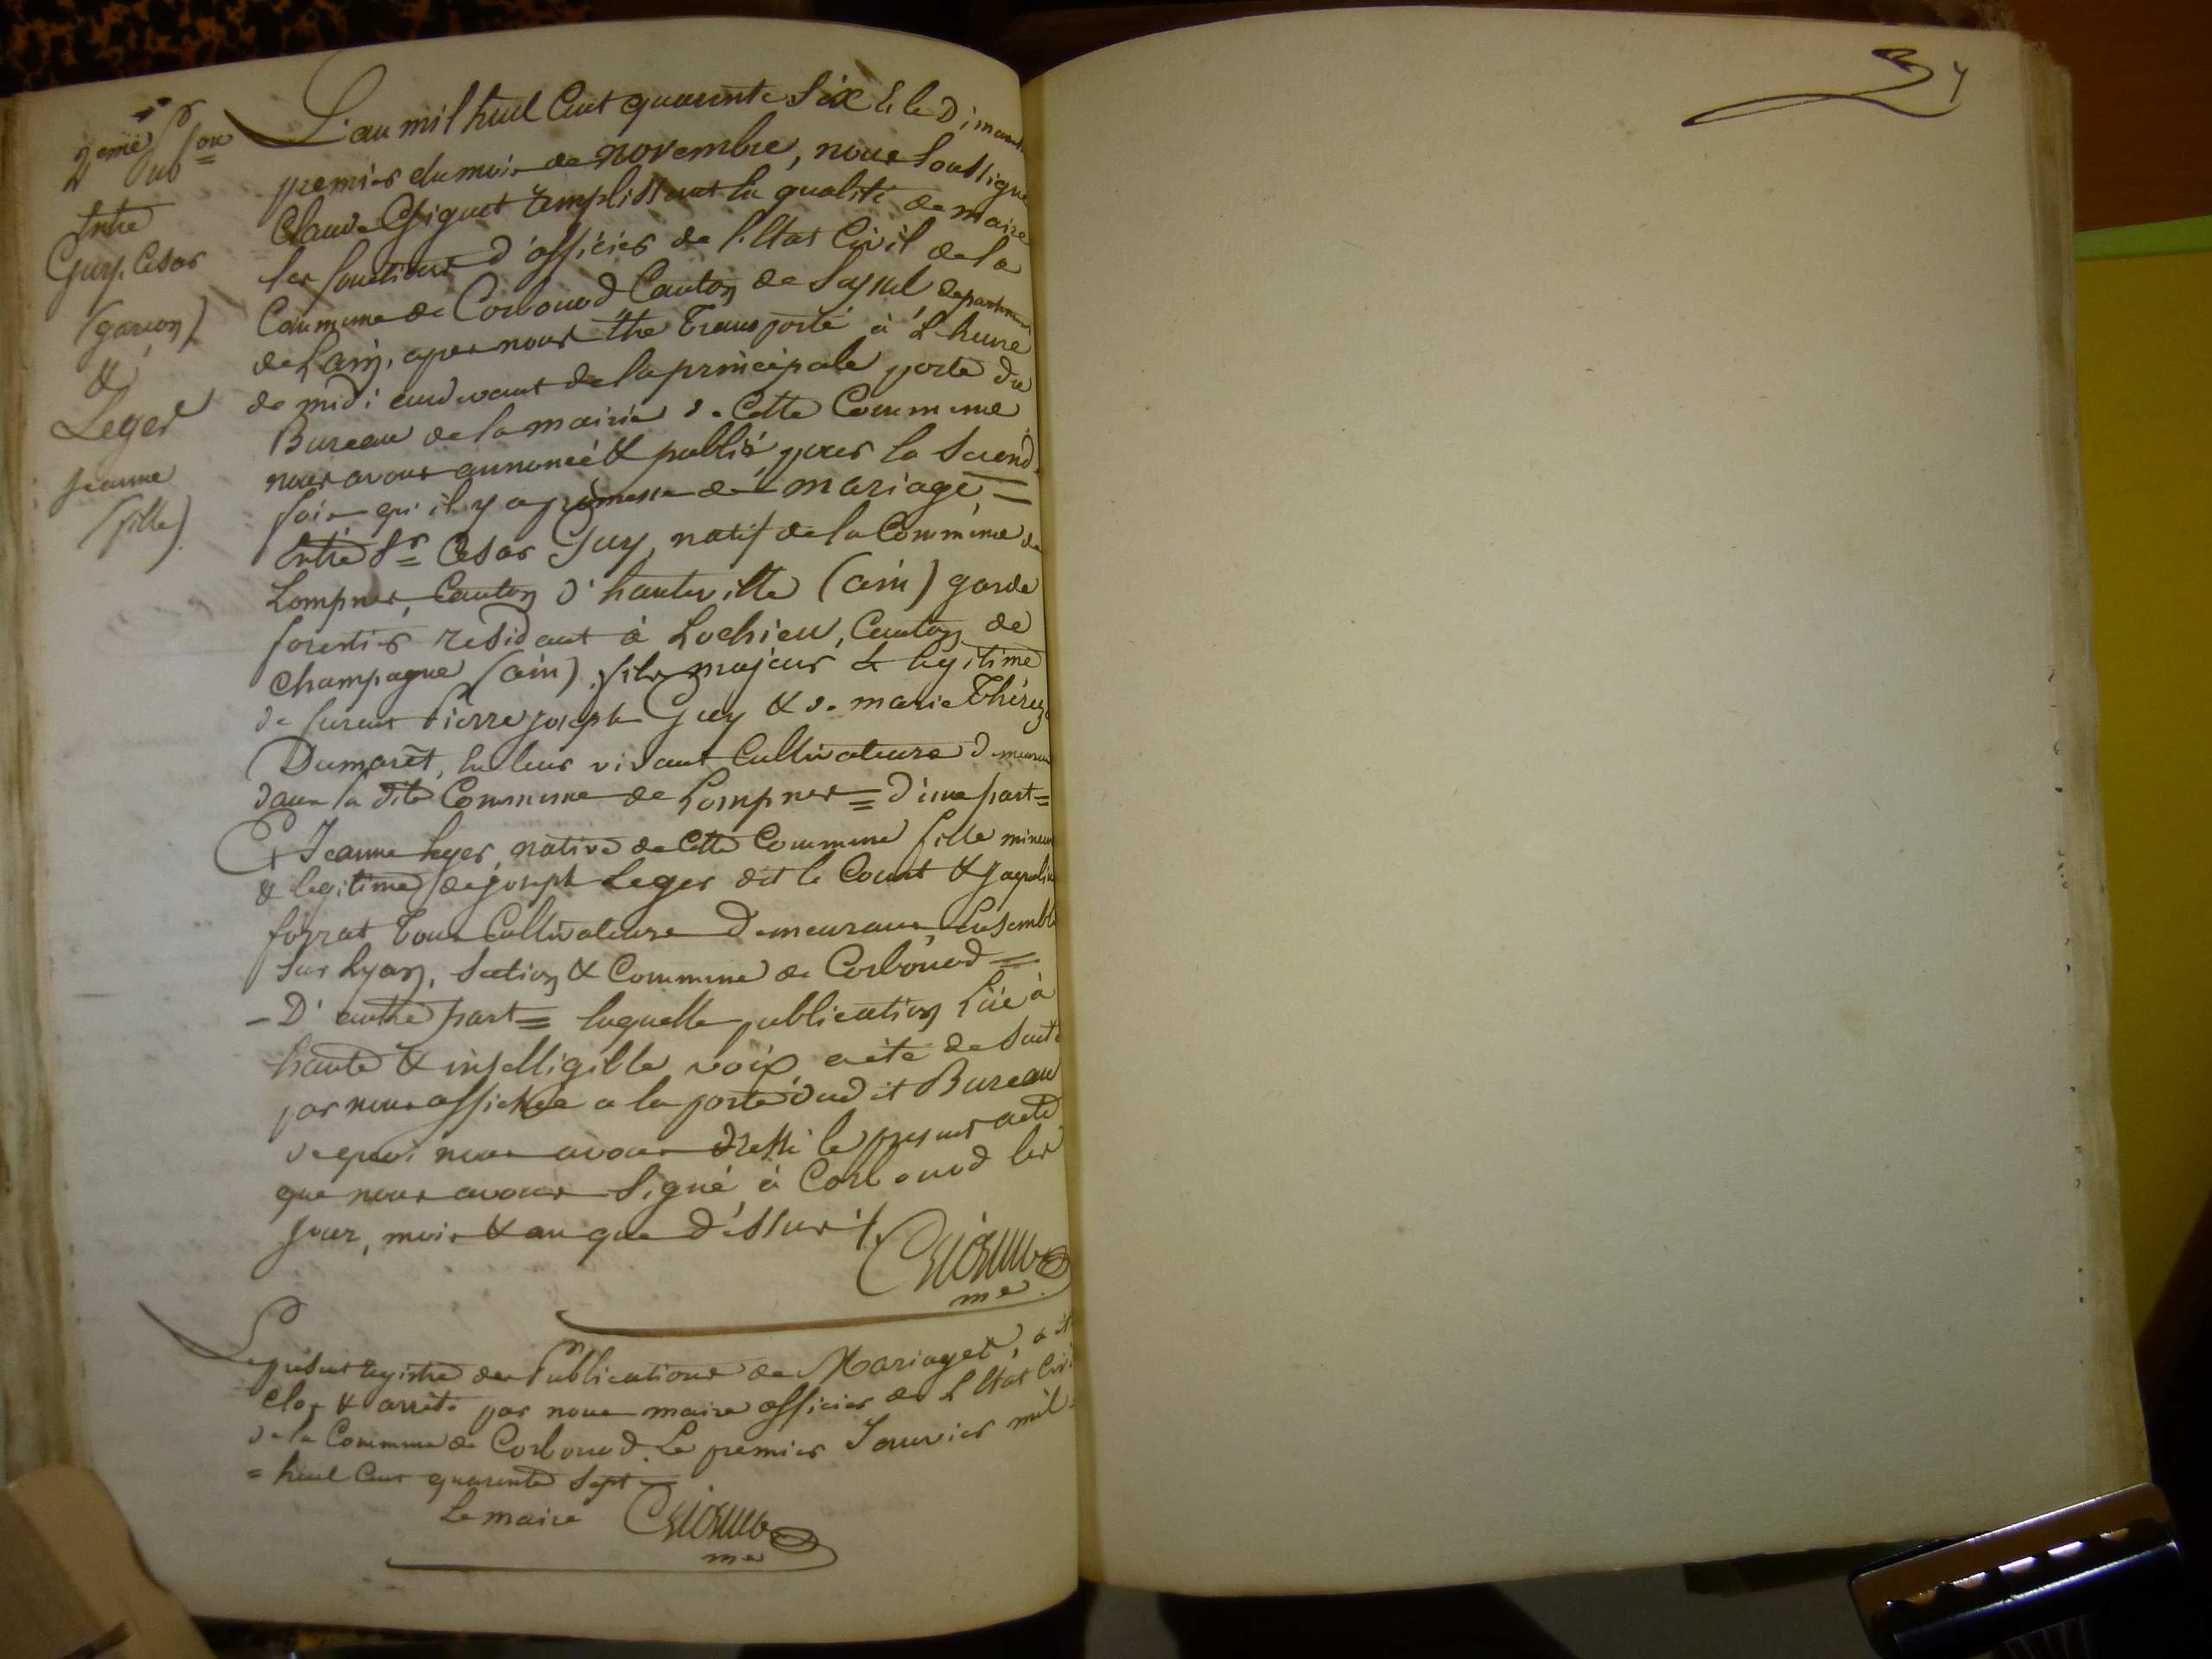 2eme Pub on
Entre
Guy, César
(garçon)
&
Leger
jeanne
(fille)
L'an mil huit Cent quarente Six & le Dimanche
premier du mois de novembre, nous Soussigné
Claude Gignet remplissant la qualité de maire
les fonctions d'officier de l'Etat Civil de la
Commune de Corbonod Canton de Seyssel departement
de Lain, apres nous être Transporté à L'heure
de midi audevant de la principale porte du
Bureau de la mairie de Cette Commune
nous avons annoncé & publié, pour la Seconde
fois qu'il y a promesse de mariage =
Entre Sr César Guy, natif de la Commune de
Lompnes, Canton d'hauteville (ain) garde
forestier residant à Lochieu, Canton de
Champagne (ain) fils majeur & legitime
de furent Pierre joseph Guy & de marie Thérèze
Dumarêt, en leur vivant Cultivateurs demeurant
dans la dite Commune de Lompnes = d'une part =
Et Jeanne Leger, native de Cette Commune fille mineure
& legitime de joseph Leger dit le Court & Jaqueline
forrat Tous Cultivateurs Demeurans Ensemble
Sur Lyon, Section & Commune de Corbonod =
- D'autre part = laquelle publication Lüe à
haute & intelligible voix, a été de Suite
par nous affichée a la porte dudit Bureau
de quoi nous avons dressé le present acte
que nous avons Signé à Corbonod les
jour, mois & an que dessus ./.
me
Le présent registre des Publications de Mariages, a été
Clos & arrêté par nous maire officier de L'Etat Civil
de la Commune de Corbonod. Le premier Janvier mil
= huit Cent quarente Sept
Le maire
me